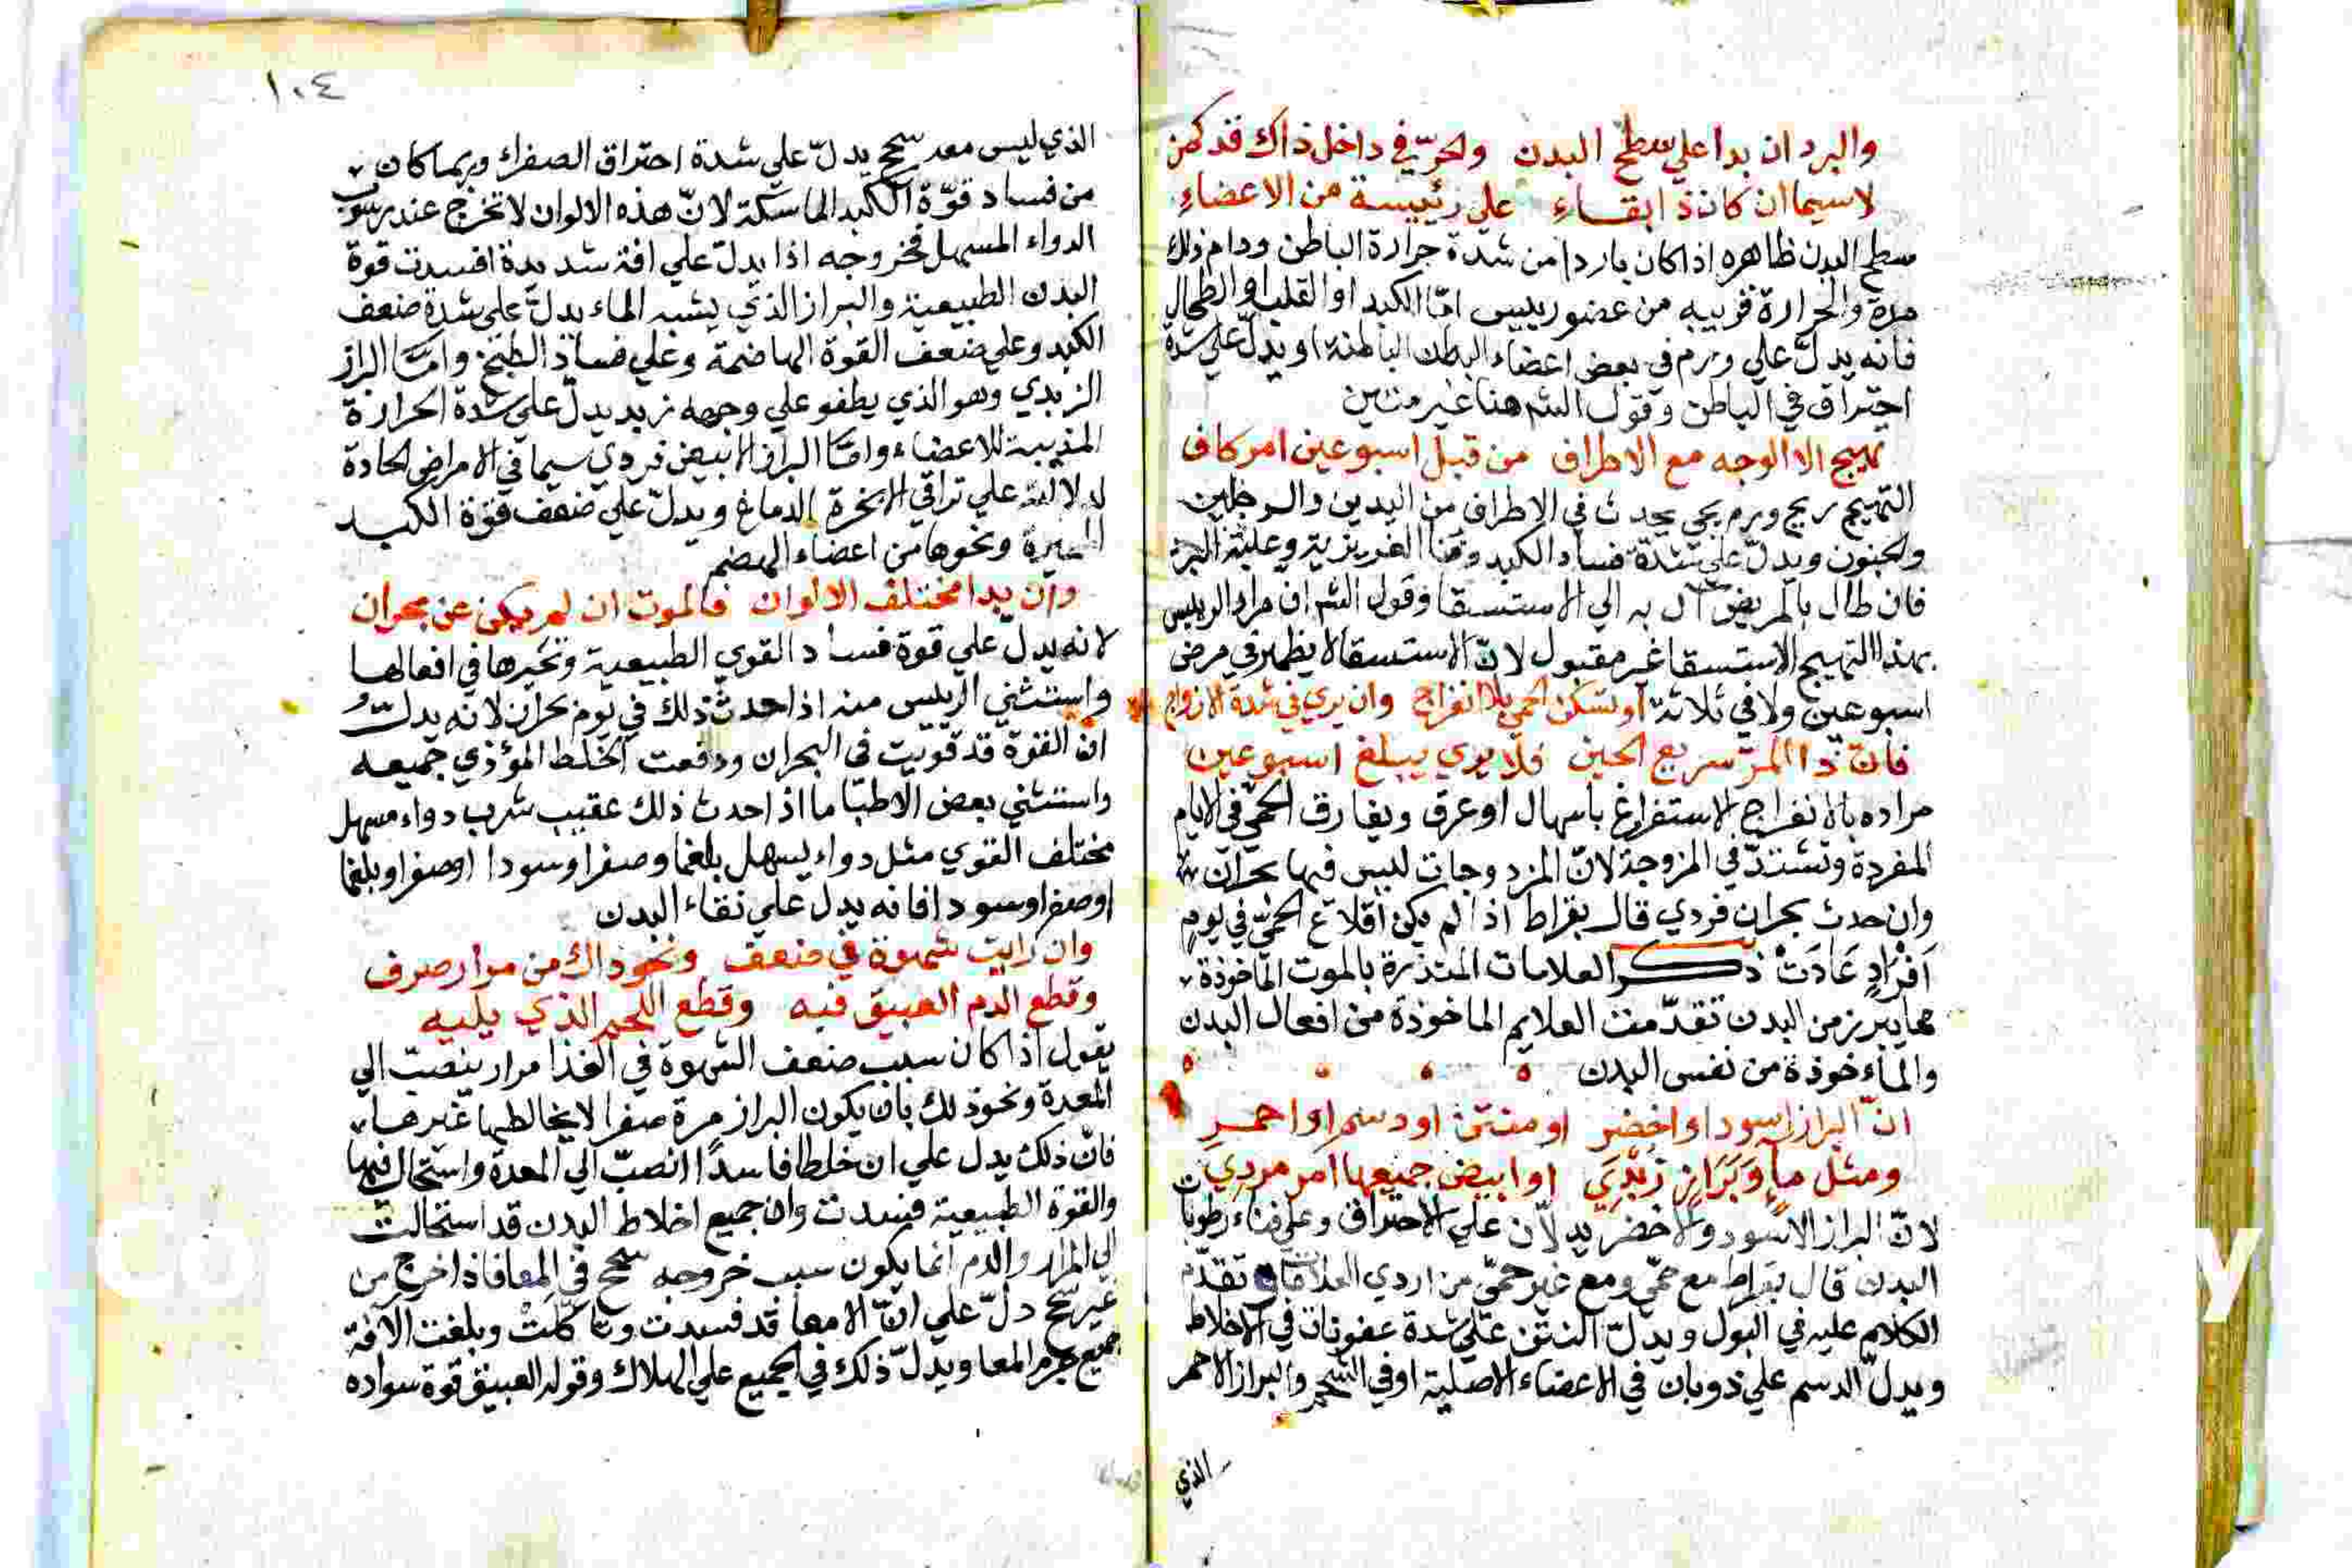 والبرد ان بدا علي سطح البدن والحرّ في داخل ذاك قد كمن
لاسيما ان كان ذا بقاء علي رئيسة من الاعضاء
سطح البدن ظاهره اذا كان باردا من شدة حرارة الباطن ودام ذلك
مدة والحرارة قريبه من عضو رييس امّا الكبد او القلب او الطحال
فانه يدلّ علي ورم في بعض اعضاء البطن الباطنة او يدلّ علي شدة
احتراق في الباطن وقول الشم هنا غير متين
تهيج الا الوجه مع الاطراف من قبل اسبوعين امر كاف
التهيج ريح ورم يجي يحدث في الاطراف من اليدين والرجلين
والجفون ويدلّ علي شدة فساد الكبد الغريزية وغلبة البرد
فان طال بالمريض آل به الي الاستسقا وقول الشم ان مراد الرييس
بهذا التهيج الاستسقا غير مقبول لانّ الاستسقا لا يظهر في مرض
اسبوعين ولا في ثلاثة او تسكن الحمي بلا انفراج وان يري في شدة الازواج
فان ذا المرّ سريع الحين فلا يري يبلغ اسبوعين
مراده بالانفراج الاستفراغ باسهال او عرق ويفارق الحمي في الايام
المفردة وتشتدّ في المزوجة لانّ المزدوجات ليس فيها بحران
وان حدث بحران فردي قال بقراط اذا لم يكن اقلاع الحمّي في يوم
اَفْرَادٍ عَادَتْ ذكر العلامات المنذرة بالموت الماخوذة
مما يبرز من البدن تقدّمت العلايم الماخوذة من افعال البدن
والماءخوذة من نفس البدن
انّ البراز اسود او اخضر او منتن او دسم او احمر
ومثل ماٍ وَبَرَازٍ زَبَدِي او ابيض جميعها امر مردي
لانّ البراز الاسود والاخضر يدلاّن علي الاحتراق وعلي فناء رطوبات
البدن قال بقراط مع حمّي ومع غير حمّي من اردي العلامات تقدّم
الكلام عليه في البول ويدلّ النتن علي شدة عفونات في الاخلاط
ويدلّ الدسم علي ذوبان في الاعضاء الاصلية او في الشحم والبراز الاحمر
الذي
١٠٤
الذي ليس معه سحج يدلّ علي شدة احتراق الصفراء وربما كان
من فساد قوّة الكبد الماسكة لانّ هذه الالوان لا تخرج عند شرب
الدواء المسهل فخروجه اذا يدلّ علي افة شديدة افسدت قوة
البدن الطبيعية والبراز الذي يشبه الماء يدلّ علي شدة ضعف
الكبد وعلي ضعف القوة الهاضمة وعلي فساد الطبخ وامّا البراز
الزبدي وهو الذي يطفو علي وجهه زبد يدلّ علي شدة الحرارة
المذيبة للاعضاء وامّا البراز الابيض فردي سيما في الامراض الحادة
لدلالته علي تراقي الابخرة الدماغ ويدلّ علي ضعف قوّة الكبد
المغيرة ونحوها من اعضاء الهضم
وان بدا مختلف الالوان فالموت ان لم يكن عن بحران
لانه يدل علي قوة فساد القوي الطبيعية وتحيرها في افعالها
واستثني الرييس منه اذا حدث ذلك في يوم بحران لانه يدلّ
ان القوة قد قويت في البحران ودفعت الخلط المؤذي جميعه
واستثني بعض الاطبّا ما اذا حدث ذلك عقيب شرب دواء مسهل
مختلف القوي مثل دواء يسهل بلغما وصفرا وسودا او صفرا وبلغما
او صفرا وسودا فانه يدل علي نقاء البدن
وان رايت شهوة في ضعف ونحو ذاك من مرار صرف
وقطع الدم العبيق فيه وقطع اللحم الذي يليه
يقول اذا كان سبب ضعف الشهوة في الغذا مرار ينصبّ الي
المعدة ونحو ذلك بان يكون البراز مرة صفرا لا يخالطها غيرها
فانّ ذلك يدل علي ان خلطا فاسدا انصبّ الي المعدة واستحال فيها
والقوة الطبيعية فسدت وان جميع اخلاط البدن قد استحالت
الي المرار والدم انما يكون سبب خروجه سحج في المعا فاذا خرج من
غير سحج دلّ علي انّ الامعا قد فسدت وتاكّلَتْ وبلغت الافة
جميع جرم المعا ويدلّ ذلك في الجميع علي الهلاك وقوله العبيق قوة سواده